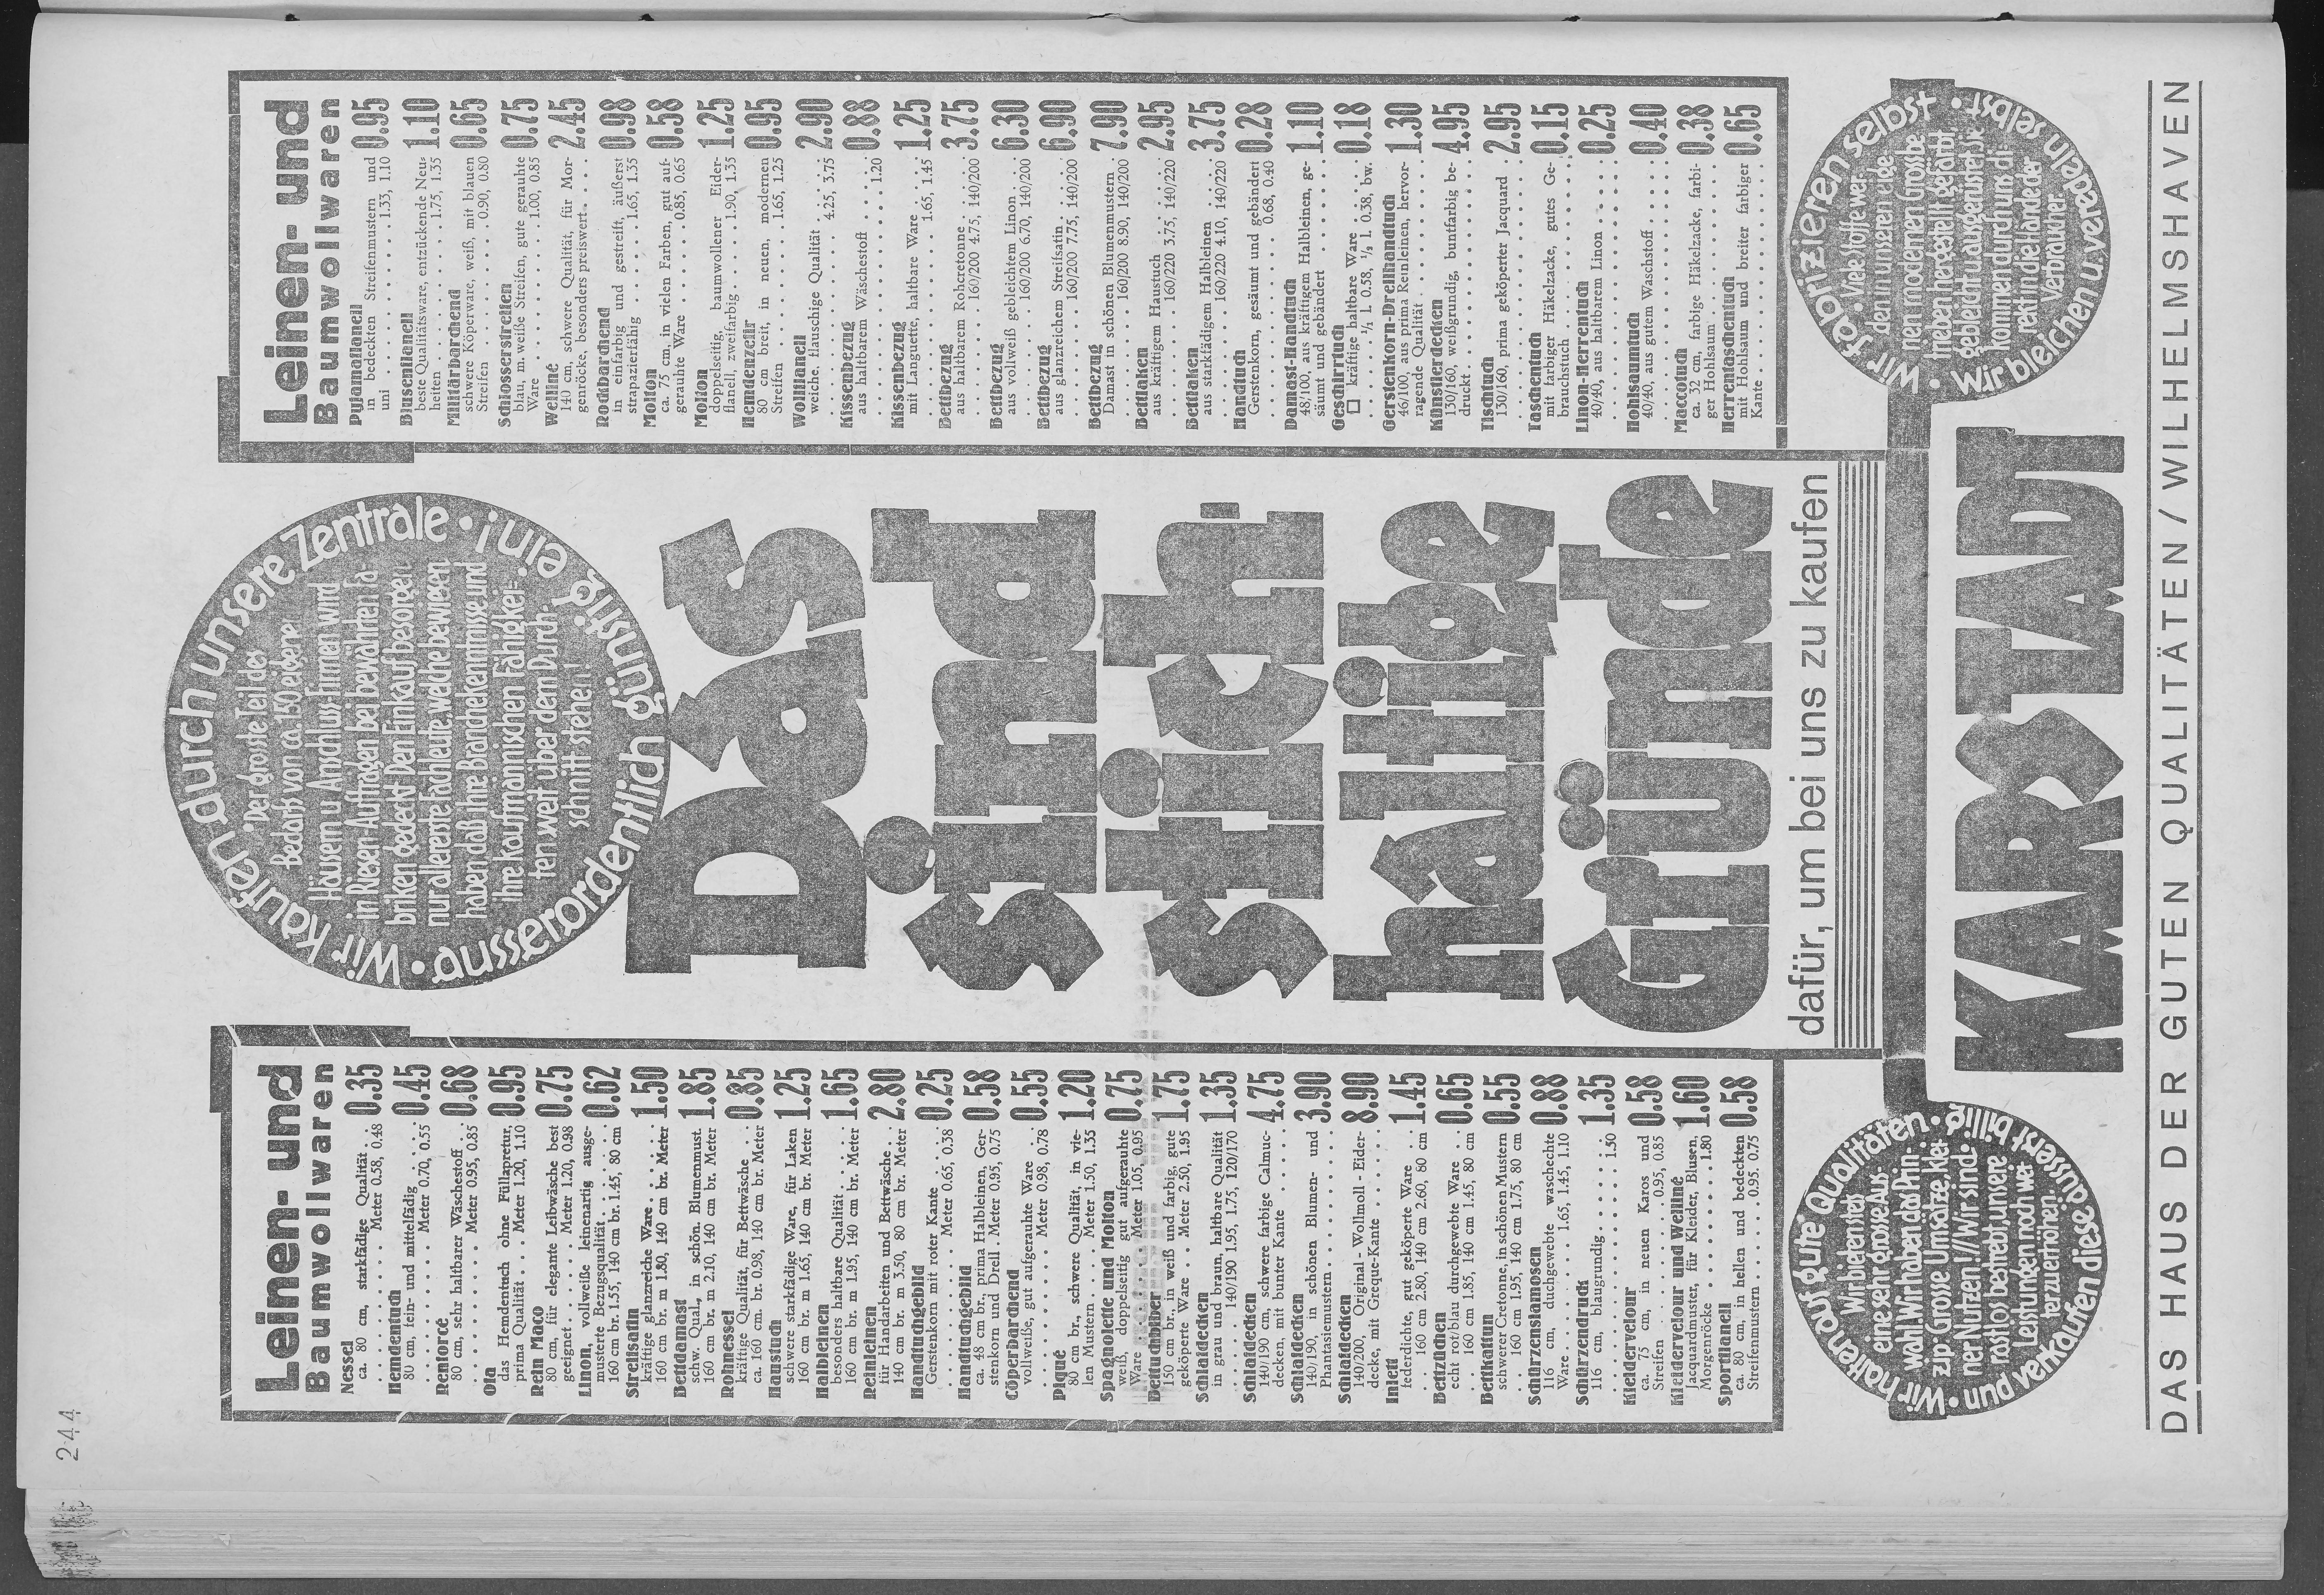 244
Leinen- und
Baumwollwaren
Nessel
ca. 80 cm, starkfädige Qualität . .
. . . . . . . . Meter 0.58, 0.48 0.35
Hemdentuch
80 cm, fein- und mittelfädig . . . .
. . . . . . . . Meter 0.70, 0.55 0.45
Renforcé
80 cm, sehr haltbarer Wäschestoff . .
. . . . . . . . Meter 0.95, 0.85 0.68
Ola
das Hemdentuch ohne Füllapretur,
prima Qualität . . . Meter 1.20, 1.10 0.95
Rein Maco
80 cm, für elegante Leibwäsche best
geeignet . . . . . Meter 1.20, 0.98 0.75
Linon, vollweiße leinenartig ausge-
musterte Bezugsqualität . . . . . .
160 cm br. 1.55, 140 cm br. 1.45, 80 cm 0.62
Streifsatin
kräftige glanzreiche Ware . . . . .
160 cm br. m 1.80, 140 cm br. Meter 1.50
Bettdamast
schw. Qual., in schön. Blumenmust.
160 cm br. m 2.10, 140 cm br. Meter 1.85
Rohnessel
kräftige Qualität, für Bettwäsche . .
ca. 160 cm. br. 0.98, 140 cm br. Meter 0.85
Haustuch
schwere starkfädige Ware, für Laken
160 cm br. m 1.65, 140 cm br. Meter 1.25
Halbleinen
besonders haltbare Qualität . . . .
160 cm br. m 1.95, 140 cm br. Meter 1.65
Reinleinen
für Handarbeiten und Bettwäsche . .
140 cm br. m 3.50, 80 cm br. Meter 2.80
Handtuchgebild
Gerstenkorn mit roter Kante . . . .
. . . . . . . . Meter 0.65, 0.38 0.25
Handtuchgebild
ca. 48 cm br., prima Halbleinen, Ger-
stenkorn und Drell . Meter 0.95, 0.75 0.58
Cöperbarchend
vollweiße, gut aufgerauhte Ware . .
. . . . . . . . Meter 0.98, 0.78 0.55
Piqué
80 cm br., schwere Qualität, in vie-
len Mustern . . . . Meter 1.50, 1.35 1.20
Spagnolette und Molton
weiß, doppelseitig gut aufgerauhte
Ware . . . . . . Meter 1.05, 0.95 0.75
Bettuchbiber
150 cm br., in weiß und farbig, gute
geköperte Ware . . Meter 2.50, 1.95 1.75
Schlafdecken
in grau und braun, haltbare Qualität
. . . . 140/190 1.95, 1.75, 120/170 1.35
Schlafdecken
140/190 cm, schwere farbige Calmuc-
decken, mit bunter Kante . . . . . 4.75
Schlafdecken
140/190, in schönen Blumen- und
Phantasiemustern . . . . . . . . . 3.90
Schlafdecken
140/200, Original - Wollmoll - Eider-
decke, mit Greque-Kante . . . . . 8.90
Inlett
federdichte, gut geköperte Ware . . .
. . 160 cm 2.80, 140 cm 2.60, 80 cm 1.45
Bettzüchen
echt rot/blau durchgewebte Ware . .
. . . 160 cm 1.85, 140 cm 1.45, 80 cm 0.65
Bettkattun
schwerer Cretonne, in schönen Mustern
. . . 160 cm 1.95, 140 cm 1.75, 80 cm 0.55
Schürzensiamosen
116 cm, duchgewebte waschechte
Ware . . . . . . . 1.65, 1.45, 1.10 0.88
Schürzendruck
116 cm, blaugrundig . . . . . . . .
. . . . . . . . . . . . . 1.50 1.35
Kleidervelour
ca. 75 cm, in neuen Karos und
Streifen . . . . . . . . 0.95, 0.85 0.58
Kleidervelour und Welliné
Jacquardmuster, für Kleider, Blusen,
Morgenröcke . . . . . . . . . 1.80 1.60
Sportflanell
ca. 80 cm, in hellen und bedeckten
Streifenmustern . . . . . 0.95, 0.75 0.58
Wir kaufen durch unsere Zentrale •
• Der grosste Teil des
Bedarfs von ca. 150 eigenen
Häusern u. Anschluss-Firmen wird
in Riesen-Aufträgen bei bewährten Fa-
briken gedeckt. Den Einkauf besorgen
nur allererste Fachleute, welche bewiesen
haben daß ihre Branchekenntnisse und
ihre kaufmännischen Fähigkei-
ten weit über dem Durch-
schnitt stehen!
• ausserordentlich günstig ein!
Das
sind
stich-
haltige
Gründe
dafür, um bei uns zu kaufen
Leinen- und
Baumwollwaren
Pyjamaflanell
in bedeckten Streifenmustern und
uni . . . . . . . . . . 1.33, 1.10 0.95
Blusenflanell
beste Qualitätsware, entzückende Neu-
heiten . . . . . . . . . 1.75, 1.35 1.10
Militärbarchend
schwere Köperware, weiß, mit blauen
Streifen . . . . . . . . 0.90, 0.80 0.65
Schlosserstreifen
blau, m. weiße Streifen, gute gerauhte
Ware . . . . . . . . . 1.00, 0.85 0.75
Welliné
140 cm, schwere Qualität, für Mor-
genröcke, besonders preiswert . . . . 2.45
Rockbarchend
in einfarbig und gestreift, äußerst
strapazierfähig . . . . . 1.65, 1.35 0.98
Molton
ca. 75 cm, in vielen Farben, gut auf-
gerauhte Ware . . . . . 0.85, 0.65 0.58
Molton
doppelseitig, baumwollener Eider-
flanell, zweifarbig . . . . . 1.90, 1.35 1.25
Hemdenzefir
80 cm breit, in neuen, modernen
Streifen . . . . . . . . 1.65, 1.25 0.95
Wollflanell
weiche, flauschige Qualität . . . . .
. . . . . . . . . . . 4.25, 3.75 2.90
Kissenbezug
aus haltbarem Wäschestoff . . . . .
. . . . . . . . . . . . . 1.20 0.88
Kissenbezug
mit Languette, haltbare Ware . . . .
. . . . . . . . . . . 1.65, 1.45 1.25
Bettbezug
aus haltbarem Rohcretonne . . . . .
. . . . . . 160/200 4.75, 140/200 3.75
Bettbezug
aus vollweiß gebleichtem Linon . . .
. . . . . . 160/200 6.70, 140/200 6.30
Bettbezug
aus glanzreichem Streifsatin . . . . .
. . . . . . 160/200 7.75, 140/200 6.90
Bettbezug
Damast in schönen Blumenmustern . .
. . . . . . 160/200 8.90, 140/200 7.90
Bettlaken
aus kräftigem Haustuch . . . . . .
. . . . . . 160/220 3.75, 140/220 2.95
Bettlaken
aus starkfädigem Halbleinen . . . .
. . . . . . 160/220 4.10, 140/220 3.75
Handtuch
Gerstenkorn, gesäumt und gebändert
. . . . . . . . . . . 0.68, 0.40 0.28
Damast-Handtuch
48/100, aus kräftigem Halbleinen, ge-
säumt und gebändert . . . . . . . 1.10
Geschirrtuch
□ kräftige haltbare Ware . . . . .
. . . . . ¹/₁ L 0.58, ¹/₂ L 0.38, bw. 0.18
Gerstenkorn-Drellhandtuch
46/100, aus prima Reinleinen, hervor-
ragende Qualität . . . . . . . . . 1.30
Künstlerdecken
130/160, weißgrundig, buntfarbig be-
druckt . . . . . . . . . . . . . 4.95
Tischtuch
130/160, prima geköperter Jacquard . .
. . . . . . . . . . . . . . . . 2.95
Taschentuch
mit farbiger Häkelzacke, gutes Ge-
brauchstuch . . . . . . . . . . . 0.15
Linon-Herrentuch
40/40, aus haltbarem Linon . . . . .
. . . . . . . . . . . . . . . . 0.25
Hohlsaumtuch
40/40, aus gutem Waschstoff . . . . .
. . . . . . . . . . . . . . . . 0.40
Maccotuch
ca. 32 cm, farbige Häkelzacke, farbi-
ger Hohlsaum . . . . . . . . . . 0.38
Herrentaschentuch
mit Hohlsaum und breiter farbiger
Kante . . . . . . . . . . . . . 0.65
• Wir halten auf gute Qualitäten •
Wir bieten stets
eine sehr grosse Aus-
wahl. Wir haben das Prin-
zip: Grosse Umsätze, klei-
ner Nutzen! // Wir sind
rastlos bestrebt, unsere
Leistungen noch wei-
ter zu erhöhen.
• und verkaufen diese äusserst billig
• Wir fabrizieren selbst •
• Viele Stoffe wer-
den in unseren eige-
nen modernen Grosbe-
trieben hergestellt gefärbt
gebleicht u. ausgerüstet. Sie
kommen durch uns di-
rekt in die Hände der
Verbraucher
Wir bleichen u. veredeln selbst
KARSTADT
DAS HAUS DER GUTEN QUALITÄTEN / WILHELMSHAVEN